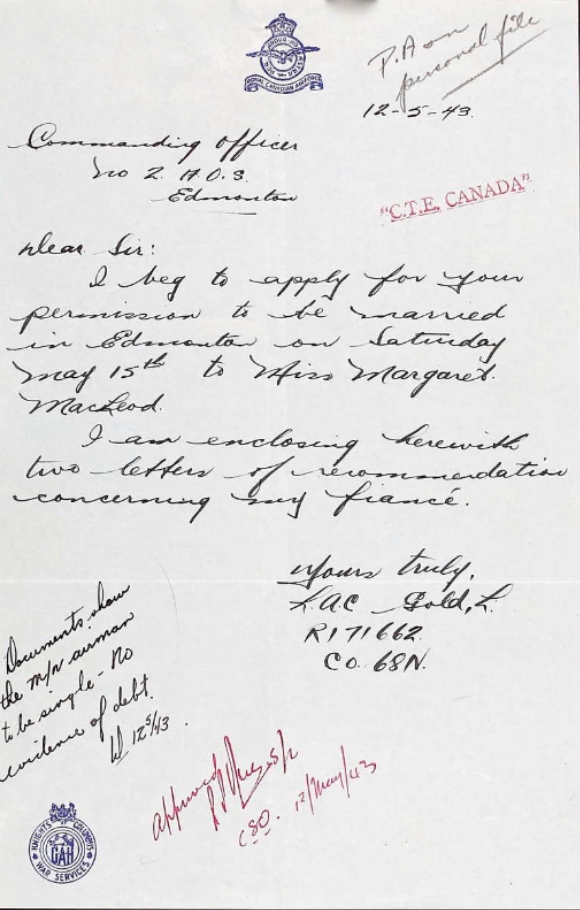 P.A on
personal file
12-5-43.
ROYAL CANADIAN AIR FORCE
Commanding Officer
No 2. A.O.S.
Edmonton
"C.T.E. CANADA"
Dear Sir:
I beg to apply for your
permission to be married
in Edmonton on Saturday
May 15th to Miss Margaret
MacLeod.
I am enclosing herewith
two letters of recommendation
concerning my fiancé.
Yours truly,
L.A.C Gold, L.
R171662.
CO. 68N.
Documents show
the m/n airman
to be single - No
evidence of debt.
12 5/43
approved
CSO. 12/May/43
KNIGHTS OF COLUMBUS
CAH
WAR SERVICES